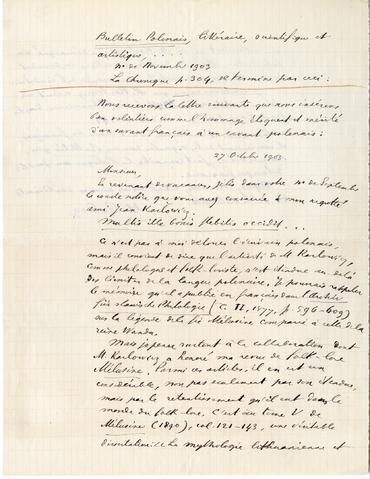 Bulletin Polonais, littéraire, scientifique et
artistique, ....
no de Novembre 1903
La Chronique p. 304, se termine par ceci :
Nous recevons la lettre suivante que nous insérons
bien volontiers comme l'hommage éloquent et mérité
d'un savant français à un savant polonais :
27 Octobre 1903.
Monsieur,
En revenant de vacances, je lis dans votre no de Septembre
la notice que vous avez consacrée à mon regretté
ami Jean Karlowicz.
Multis ille bonis flebilis occidit...
Ce n'est pas à moi de louer l'écrivain polonais,
mais il convient de dire que l'activité de M. Karlowicz,
comme philologue et folk-loriste, s'est étendue au-delà
des limites de la langue polonaise. Je pourrais rappeler
le mémoire qu'il a publié en français dans l'Archiv
für slavische Philologie (t. II, 1877, p. 596-609)
sur la légende de la fée Mélusine comparée à celle de la
reine Wanda.
Mais je pense surtout à la collaboration dont
M. Karlowicz a honoré ma revue de folk-lore
Mélusine. Parmi ces articles, il en est un
considérable, non pas seulement par son étendue,
mais par le retentissement qu'il eut dans le
monde du folk-lore. C'est au tome V de
Mélusine (1890), col. 121-143, une véritable
dissertation : La mythologie lithuanienne et